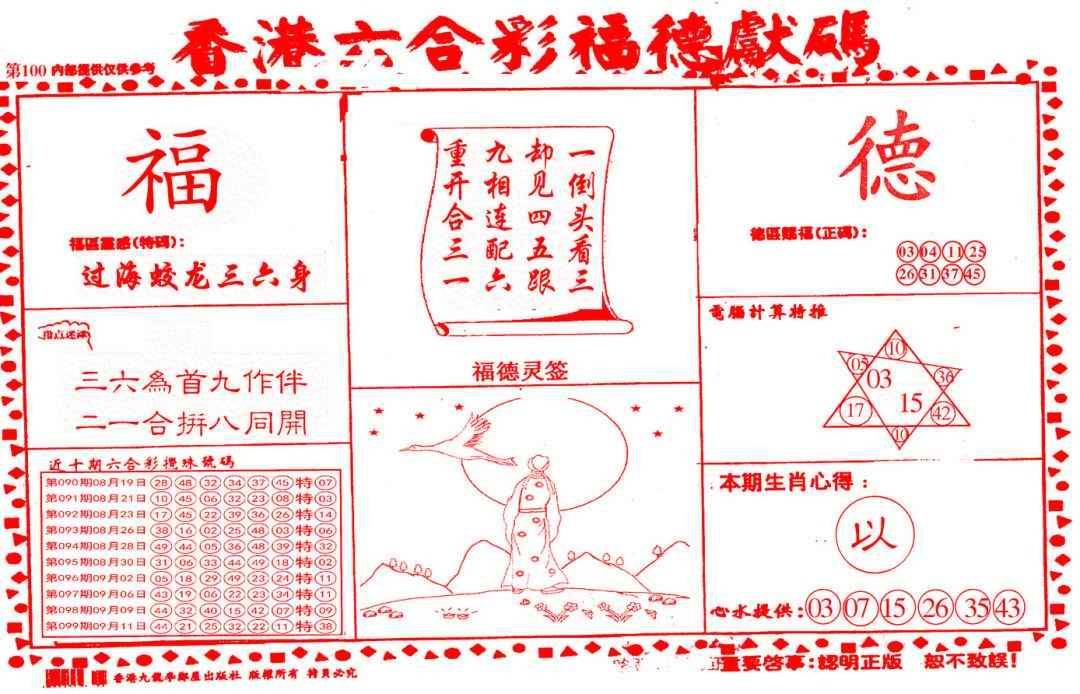 香港六合彩福德獻碼
第100 内部提供仅供参考
福
福區靈感(特碼):
过海蛟龙三六身
指点迷津
三六為首九作伴
二一合拼八同開
近十期六合彩攪珠號碼
第090期08月19日 28 48 32 34 37 45 特 07
第091期08月21日 10 45 06 32 23 08 特 03
第092期08月23日 17 45 22 39 36 26 特 14
第093期08月26日 38 16 02 25 48 03 特 06
第094期08月28日 49 44 05 36 48 39 特 32
第095期08月30日 31 06 33 44 49 18 特 02
第096期09月02日 05 18 29 49 23 24 特 11
第097期09月06日 43 19 06 22 23 34 特 11
第098期09月09日 44 32 40 15 42 07 特 09
第099期09月11日 44 21 25 32 22 11 特 38
一倒头看三
却见四五跟
九相连配六
重开合三一
福德灵签
德
德區賜福(正碼):
03 04 11 25
26 31 37 45
電腦計算特推
10
05 03 36
17 15 42
10
本期生肖心得:
以
心水提供: 03 07 15 26 35 43
香港九龍學鄰屋出版社 版權所有 特員必究
重要啓事:認明正版 恕不致誤!